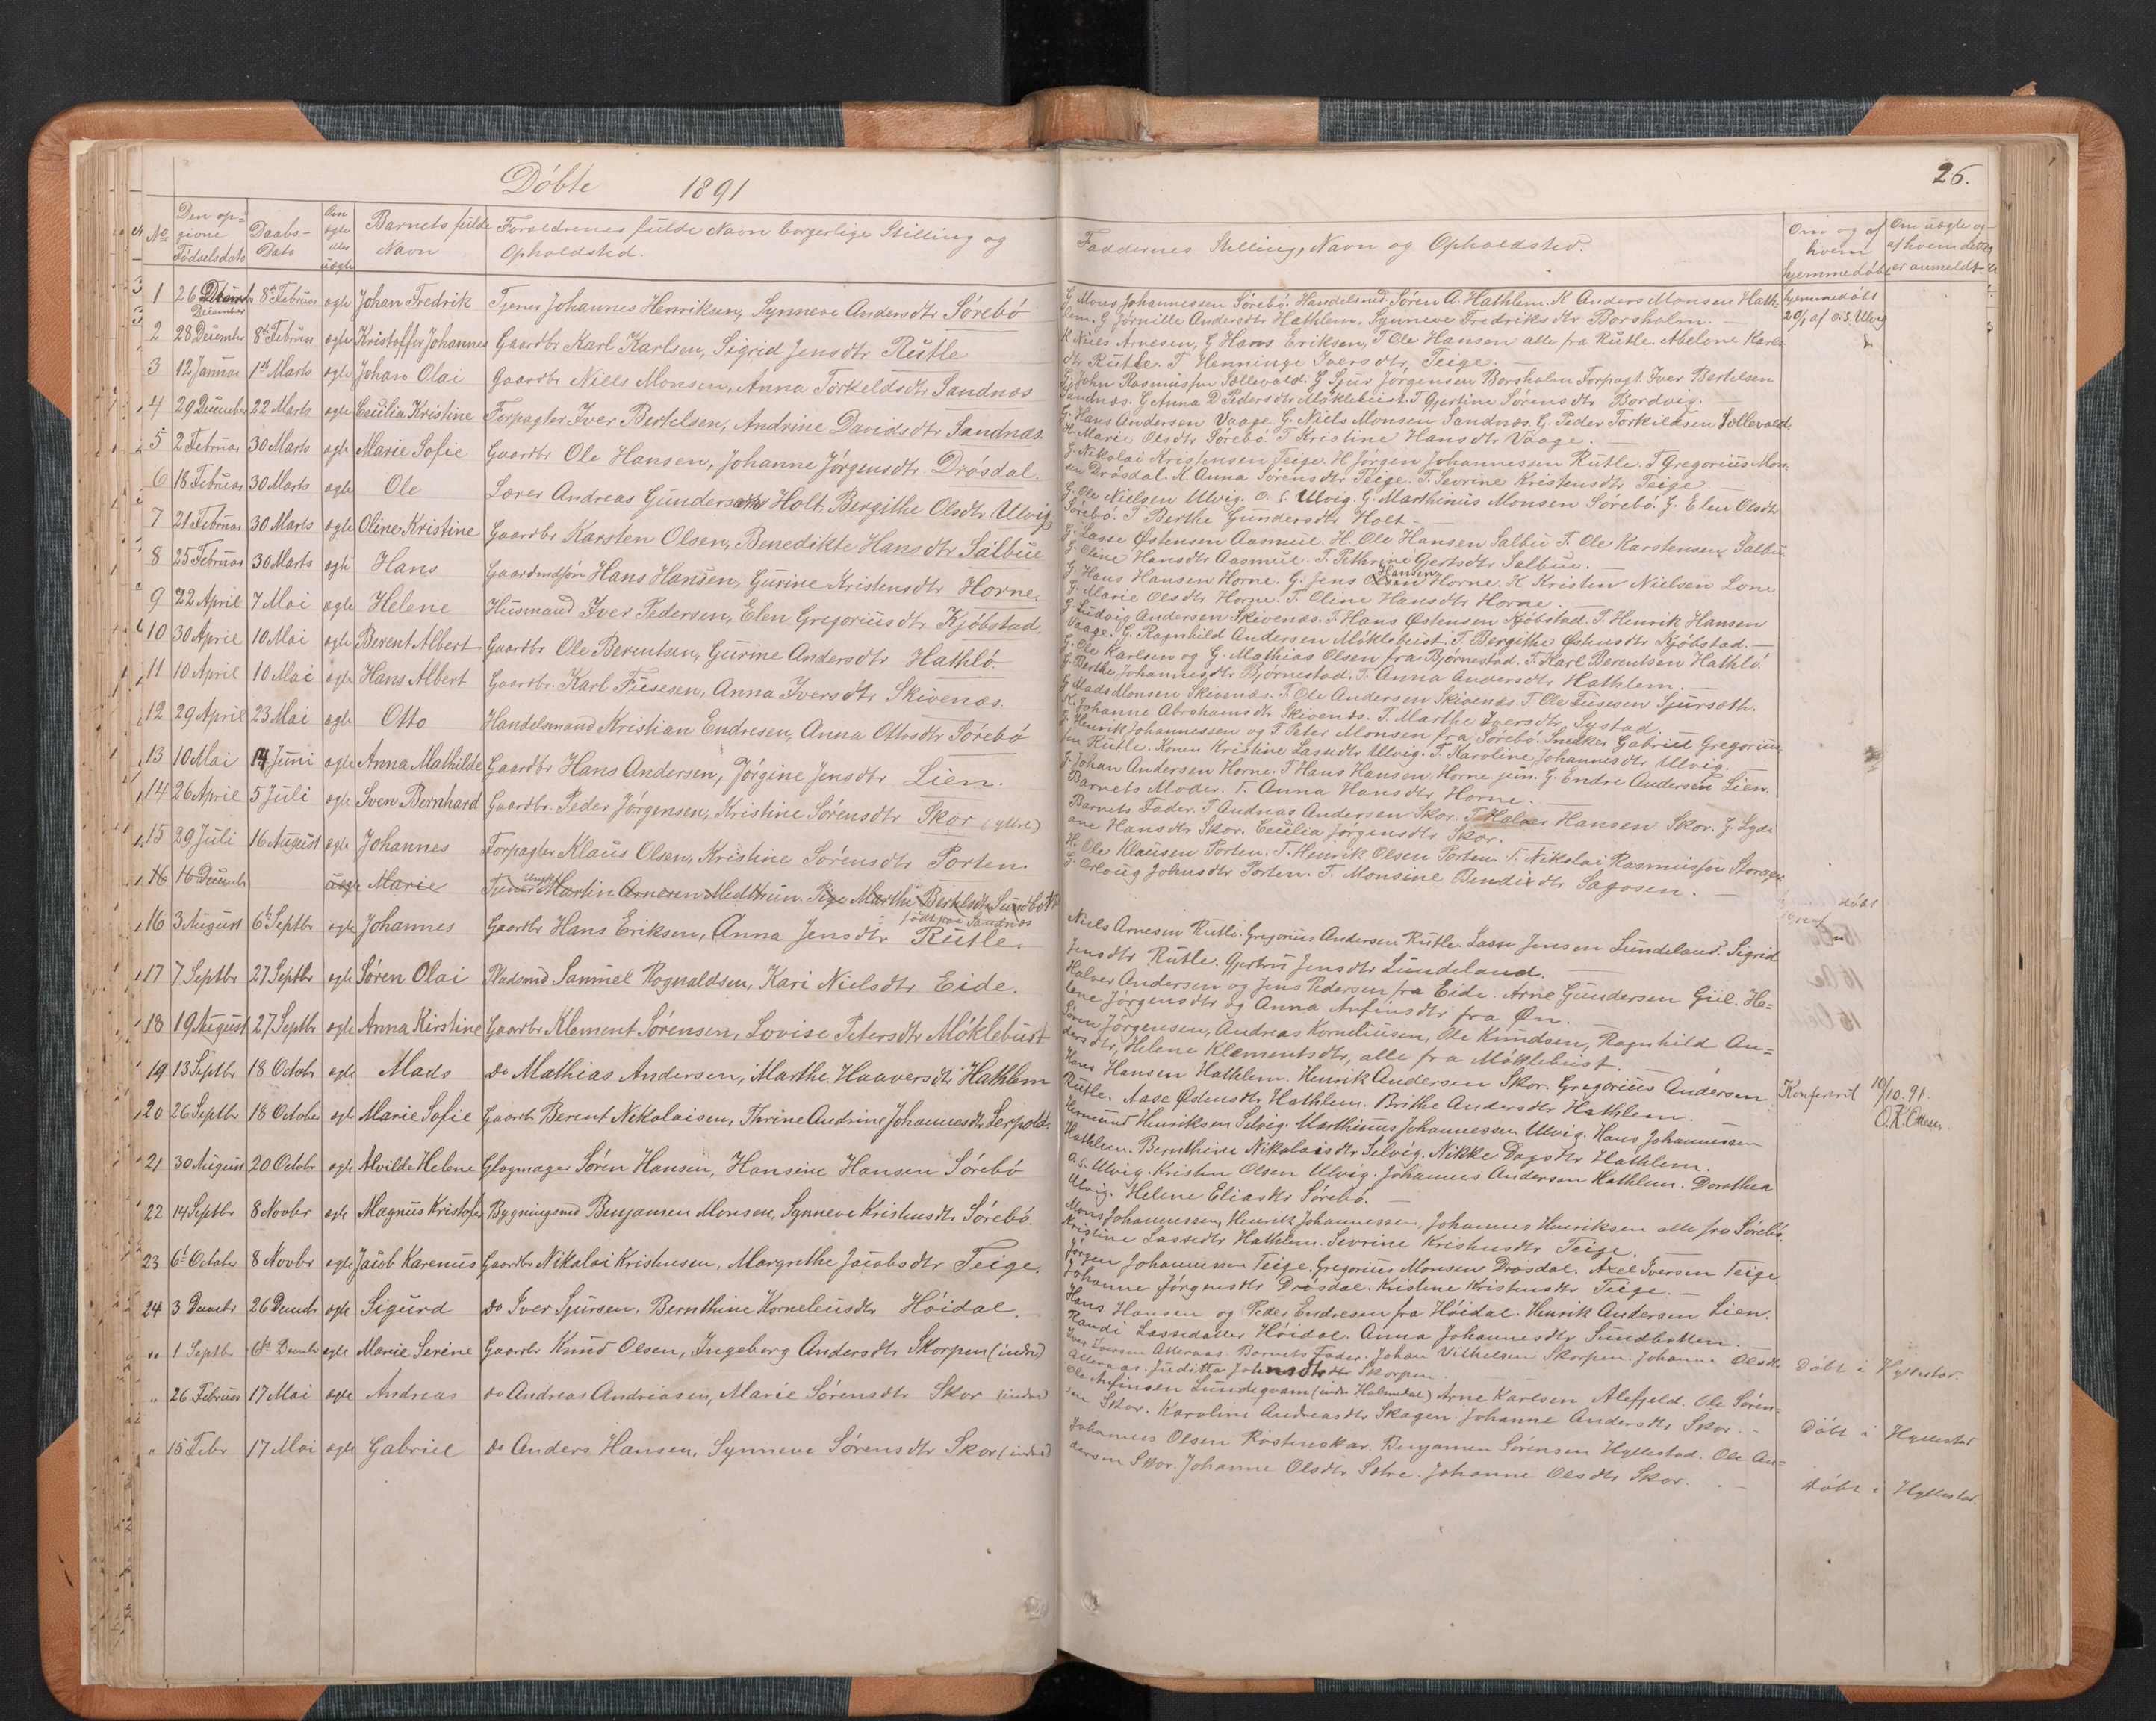 Döbte 1891
No
Den op=
givne
Födselsdato
Daabs-
Dato
Om
ægte
eller
uægte
Barnets fulde
Navn
Forældrenes fulde Navn borgerlige Stilling og
Opholdsted.
1 26 December 8de Februar ægte Johan Fredrik Tjener Johannes Henriksen, Synneve Andersdtr Sörebö
2 28 December 8de Februar ægte Kristoffer Johannes Gaardbr Karl Karlsen, Sigrid Jensdtr Rutle
3 12 Januar 1ste Marts ægte Johan Olai Gaardbr Niels Monsen, Anna Torkeldsdtr Sandnæs
4 29 December 22 Marts ægte Cecilia Kristine Forpagter Iver Bertelsen, Andrine Davidsdtr Sandnæs.
5 2 Februar 30 Marts ægte Marie Sofie Gaardbr Ole Hansen, Johanne Jörgensdtr Drösdal.
6 18 Februar 30 Marts ægte Ole Lærer Andreas Gundersen Holt, Bergithe Olsdtr Ulvig
7 21 Februar 30 Marts ægte Oline Kristine Gaardbr Karsten Olsen, Benedikte Hansdtr Salbue
8 25 Februar 30 Marts ægte Hans Gaardmdssön Hans Hansen, Gurine Kristensdtr Horne.
9 22 April 7 Mai ægte Helene Husmand Iver Pedersen, Elen Gregoriusdtr Kjöbstad.
10 30 April 10 Mai ægte Berent Albert Gaardbr Ole Berentsen, Gurine Andersdtr Hathlö.
11 10 April 10 Mai ægte Hans Albert Gaardbr. Karl Tusesen, Anna Iversdtr Skivenæs.
12 29 April 23 Mai ægte Otto Handelsmand Kristian Endresen, Anna Ottosdtr Sörebö
13 10 Mai 14 Juni ægte Anna Mathilde Gaardbr Hans Andersen, Jörgine Jensdtr Lien.
14 26 April 5 Juli ægte Sven Bernhard Gaardbr. Peder Jörgensen, Kristine Sörensdtr Skor (yttre)
15 29 Juli 16 August ægte Johannes Forpagter Klaus Olsen, Kristine Sörensdtr Porten.
16 16 Decembr uægte Marie Tjener Ungk. Martin Arnesen Medthun. Pige Marthe Bertelsdtr Sundbott
födt paa Sandnæs
16 3 August 6te Septbr ægte Johannes Gaardbr Hans Eriksen, Anna Jensdtr Rutle.
17 7 Septbr 27 Septbr ægte Sören Olai Pladsmd Samuel Rognaldsen, Kari Nielsdtr Eide.
18 19 August 27 Septbr ægte Anna Kirstine Gaardbr. Klement Sörensen, Lovise Petersdtr Möklebust
19 13 Septbr 18 Octobr ægte Mads do Mathias Andersen, Marthe Haaversdtr Hathlem
20 26 Septbr 18 October ægte Marie Sofie Gaardbr Berent Nikolaisen, Thrine Andrine Johannesdtr Lerpold.
21 30 August 20 Octobr ægte Alvilde Helene Glogmager Sören Hansen, Hansine Hansen Sörebö
22 14 Septbr 8 Novbr ægte Magnus Kristofer Bygningsmd Benjamen Monsen, Synneve Kristensdtr Sörebö
23 6te October 8 Novbr ægte Jacob Karenus Gaardbr Nikolai Kristensen, Margrethe Jacobsdtr Teige.
24 3 Decembr 26 Decembr ægte Sigurd do Iver Sjursen, Bernthine Korneleusdtr Höidal.
" 1 Septbr 6te Decembr ægte Marie Serine Gaardbr Knud Olsen, Ingeborg Andersdtr Skorpen (indre)
" 26 Februar 17 Mai ægte Andreas do Andreas Andreasen, Marie Sörensdtr Skor (indre)
" 15 Febr 17 Mai ægte Gabriel do Anders Hansen, Synneve Sörensdtr Skor (indre)
26.
Faddernes Stilling, Navn og Opholdsted.
Om og af
hvem
hjemmedöbt
Om uægte og
af hvem dette
er anmeldt
G. Mons Johannessen Sörebö. Handelsmd. Sören A. Hathlem. K Anders Monsen Hath- hjemmedöbt
lem. G Jörnille Andersdtr Hathlem. Synneve Fredriksdtr Borsholm. 20/1 af O. S. Ulvig
K Niels Arnesen, G Hans Eriksen, T Ole Hansen alle fra Rutle. Abelone Karls
dtr Rutle. T Henninge Iversdtr, Teige.
G. John Rasmussen Sollevold. G Sjur Jörgensen Borsholm Forpagt. Iver Bertelsen
Sandnæs. G Anna D Pedersdtr Möklebust. T Gjertine Sörensdtr Bordvig.
G. Hans Andersen Vaage. G. Niels Monsen Sandnæs. G. Peder Torkildsen Sollevold
H. Marie Olsdtr Sörebö. T Kristine Hansdtr Vaage.
G. Nikolai Kristensen Teige. H Jörgen Johannessen Rutle. T Gregorius Mon-
sen Drösdal. K. Anna Sörensdtr Teige. T. Sevrine Kristensdtr Teige
G. Ole Nielsen Ulvig. O. S. Ulvig. G. Marthinus Monsen Sörebö. G. Elen Olsdtr
Sörebö. T Berthe Gundersdtr Holt
G. Lasse Østensen Aasmul. H. Ole Hansen Salbu T. Ole Karstensen Salbu
G. Oline Hansdtr Aasmul. T. Pethrine Gertsdtr Salbue.
G. Hans Hansen Horne. G. Jens Hansen Horne. K Kristen Nielsen Lone.
G. Marie Olsdtr Horne. T. Oline Hansdtr Horne.
G Ludvig Andersen Skivenæs. T. Hans Østensen Kjöbstad. T. Henrik Hansen
Vaage. G. Ragnhild Andersen Möklebust. T. Bergithe Østensdtr Kjöbstad.
G. Ole Karlsen og G. Mathias Olsen fra Bjørnestad. T. Karl Berentsen Hathlö.
G. Berthe Johannesdtr Bjørnestad. T. Anna Andersdtr Hathlem.
G Mads Monsen Skivenæs. T. Ole Andersen Skivenæs. T. Ole Tusesen Sjurseth.
K. Johanne Abrahamsdtr Skivenæs. T. Marthe Iversdtr, Systad.
G. Henrik Johannessen og T Peter Monsen fra Sörebö. Snedker Gabriel Gregorius
sen Rutle. Konen Kristine Lassedtr Ulvig. T. Karoline Johannesdtr Ulvig.
G. Johan Andersen Horne. T Hans Hansen, Horne jun. G. Endre Andersen Lien.
Barnets Moder. T. Anna Hansdtr Horne.
Barnets Fader. T Andreas Andersen Skor. T Halver Hansen Skor. G. Lydi
ane Hansdtr Skor. Cecilia Jörgensdtr Skor.
H. Ole Klausen Porten. T. Henrik Olsen Porten. T. Nikolai Rasmussen Storager
G. Orloug Johnsdtr Porten. T. Monsine Bendixdtr Sagosen.
Niels Arnesen Rutle. Gregorius Andersen Rutle. Lasse Jensen Lundeland. Sigrid
Jensdtr Rutle. Gjertrus Jensdtr Lundeland.
Halver Andersen og Jens Pedersen fra Eide. Arne Gundersen Gül. He=
lene Jörgensdtr og Anna Anfinsdtr fra Øn.
Sören Jörgensen, Andreas Korneliusen, Ole Knudsen, Ragnhild An=
dersdtr, Helene Klementsdtr, alle fra Möklebust.
Hans Hansen Hathlem. Henrik Andersen Skor. Gregorius Andersen
Rutle. Aase Østensdtr Hathlem. Brithe Andersdtr Hathlem. 10/10.91.
Hermund Henriksen Selvig. Marthinus Johannessen Ulvig. Hans Johannessen
Hathlem. Bernthine Nikolaisdtr Selvig. Nikke Dagsdtr Hathlem.
O. S. Ulvig. Kristen Olsen Ulvig. Johannes Andersen Hathlem. Dorothea
Ulvig. Helene Eliasdtr Sörebö.
Mons Johannessen, Henrik Johannessen, Johannes Henriksen alle fra Sörebö.
Kristine Lassedtr Hathlem. Sevrine Kristensdtr Teige.
Jörgen Johannessen Teige. Gregorius Monsen Drösdal. Axel Iversen Teige
Johanne Jörgensdtr Drösdal. Kristine Kristensdtr Teige.
Hans Hansen og Peder Endresen fra Höidal. Henrik Andersen Lien.
Randi Lassedatter Höidal. Anna Johannesdtr Sundbotten.
Iver Iversen Atteraas. Barnets Fader. Johan Vilhelsen Skorpen. Johanna Olsdtr Döbt i Hyllestad.
Atteraas. Juditta Johnsdtr Skorpen.
Ole Anfinsen Lundeqvam (indre Holmedal) Arne Karlsen Alefjeld. Ole Sören=
sen Skor. Karoline Andreasdtr Skagen. Johanne Andersdtr Skor. Döbt i Hyllestad
Johannes Olsen Rostenskar. Benjamen Sörensen Hyllestad. Ole An=
dersen Skor. Johanne Olsdtr Sætre. Johanne Olsdtr Skor. Döbt i Hyllestad.